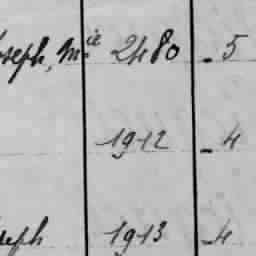 oseph, Mie 2480 - 5
1912 - 4
seph 1913 - 4